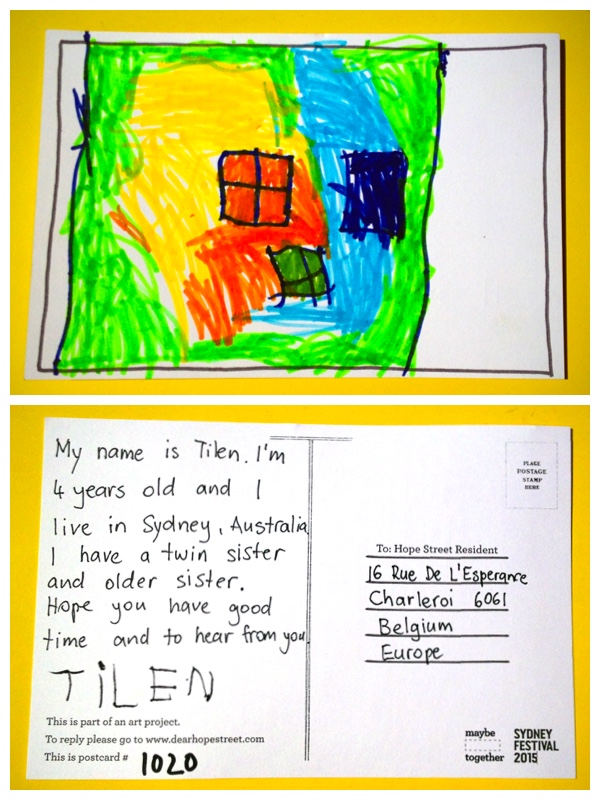 My name is Tilen. I'm
4 years old and I
live in Sydney, Australia
I have a twin sister
and older sister.
Hope you have good
time and to hear from you.
TiLEN
This is part of an art project.
To reply please go to www.dearhopestreet.com
This is postcard # 1020
PLACE
POSTAGE
STAMP
HERE
To: Hope Street Resident
16 Rue De L'Esperance
Charleroi 6061
Belgium
Europe
maybe
together
SYDNEY
FESTIVAL
2015